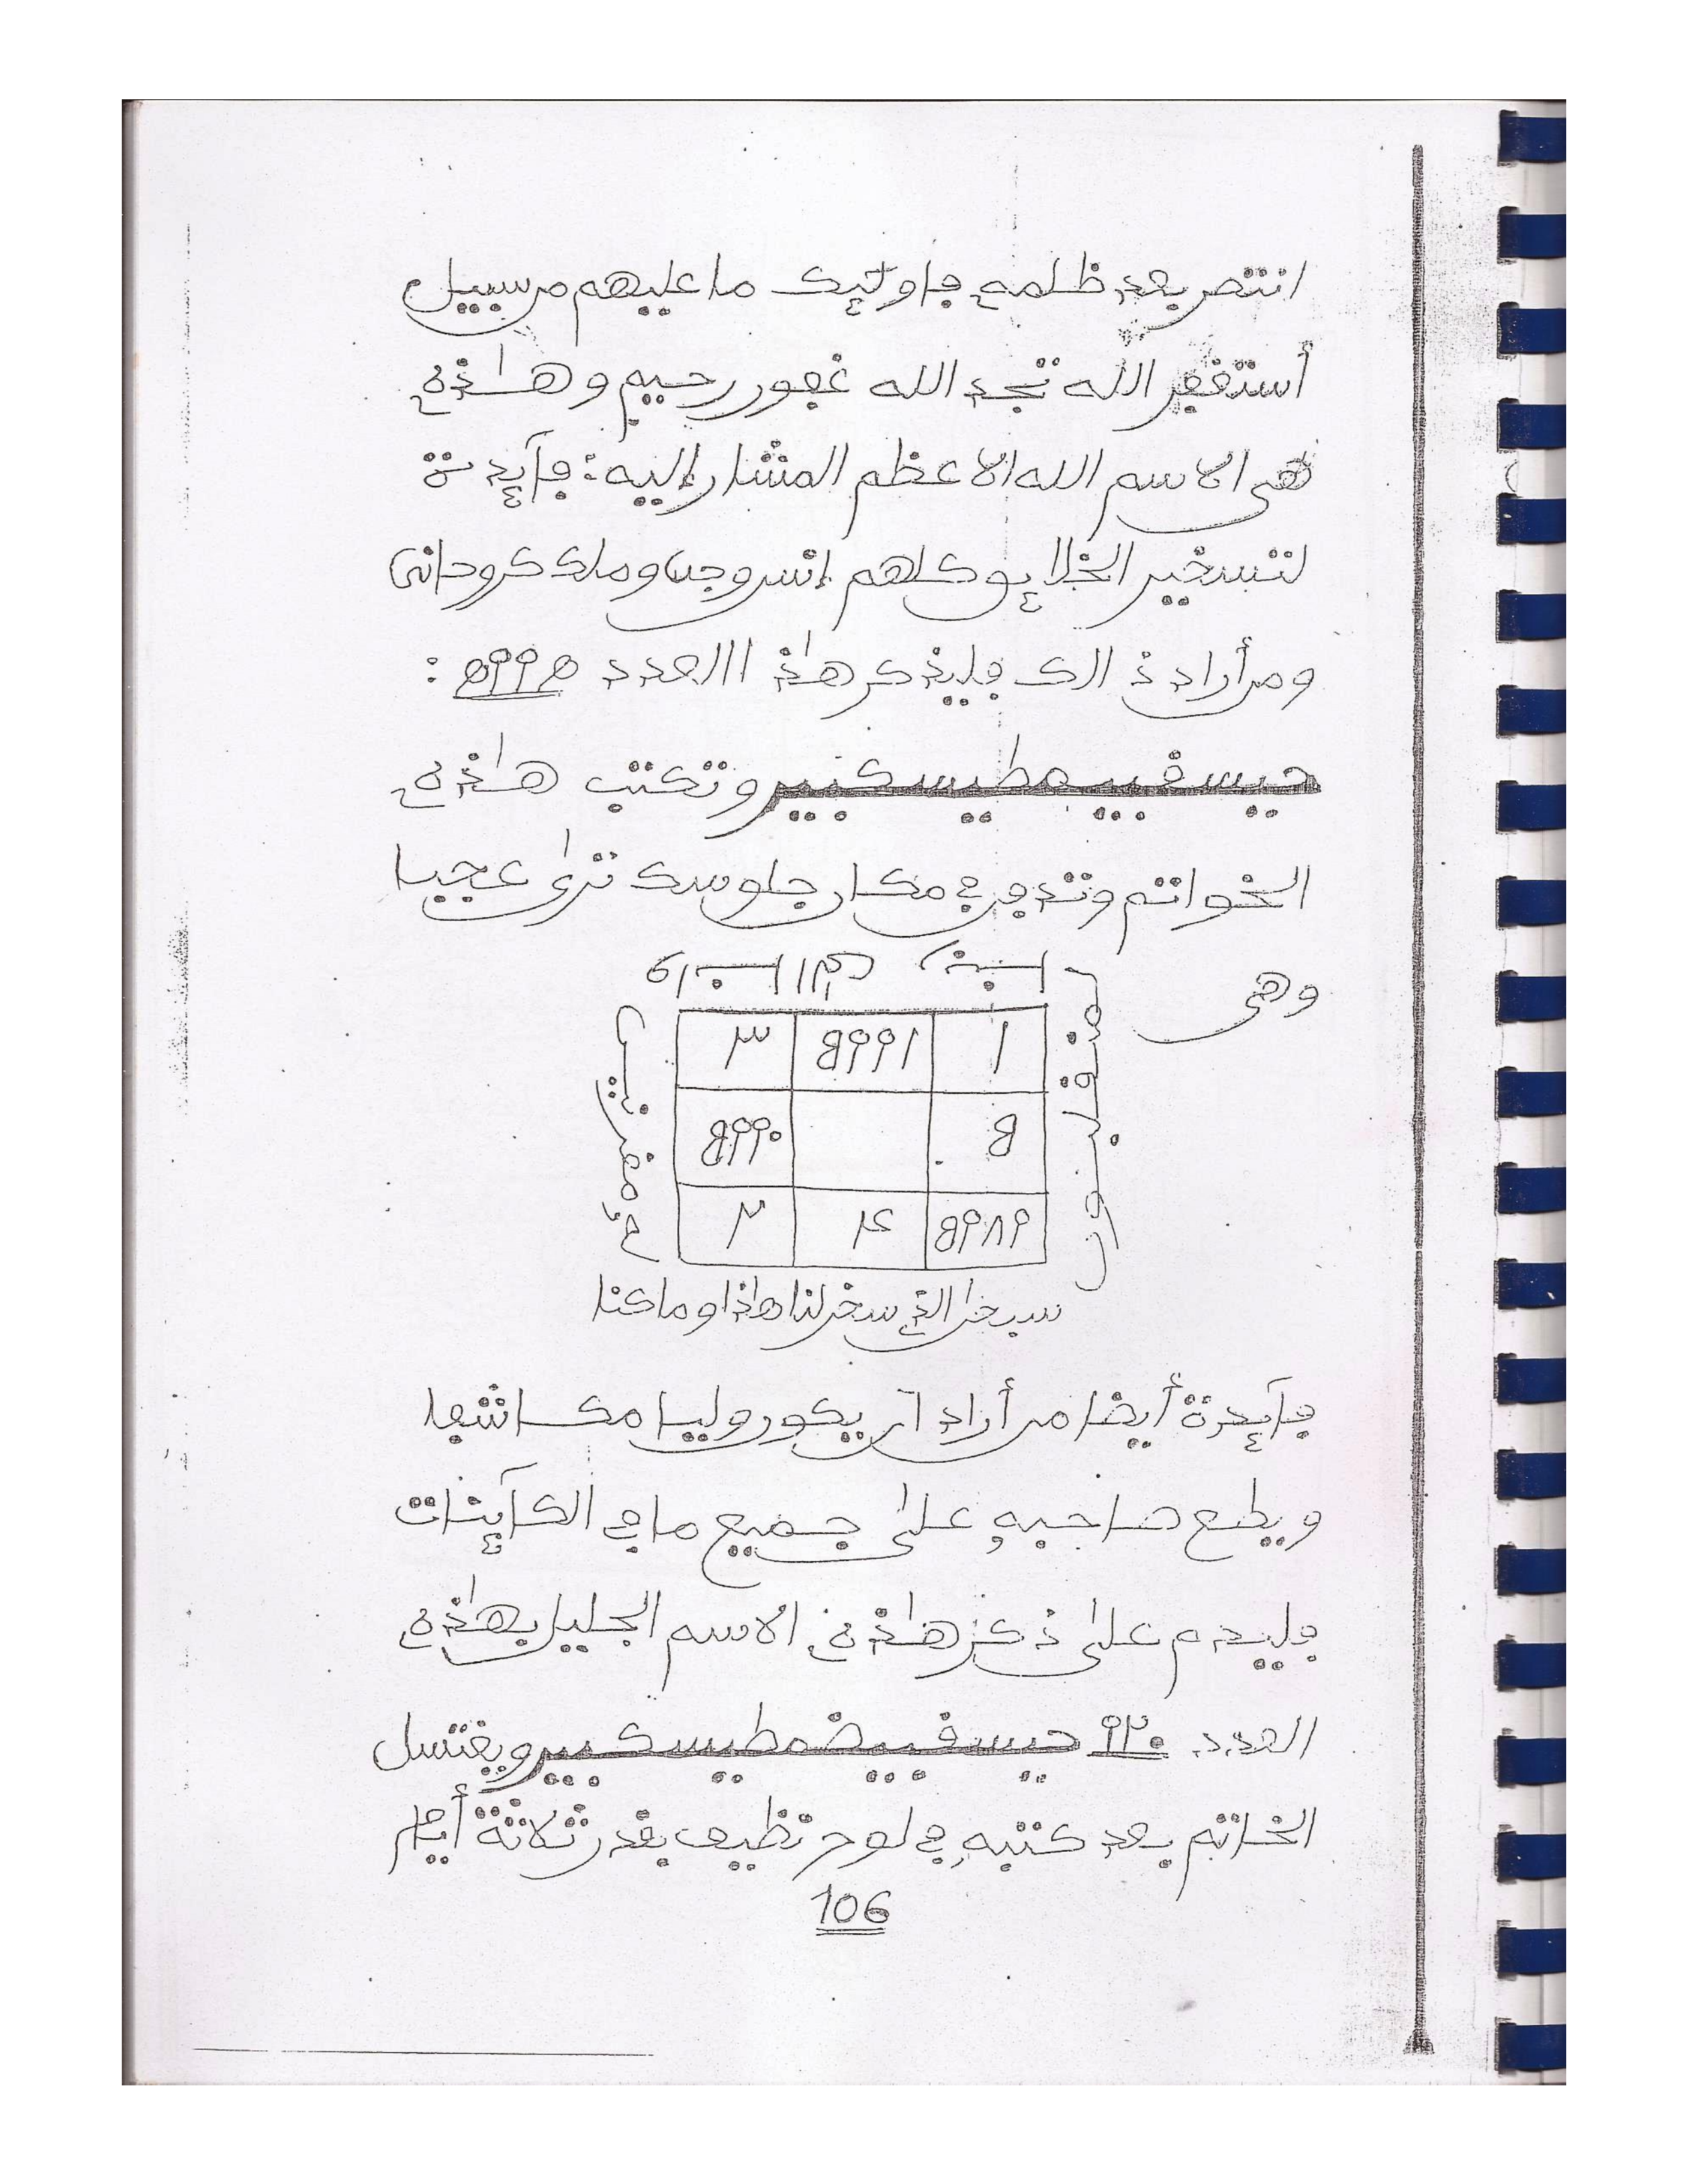 انتصر بعد ظلمه فاولئك ما عليهم من سبيل
أستغفر الله تجد الله غفور رحيم وهٰذه
هى الاسم الله الاعظم المشار إليه: فآيدة
لتسخير الخلايق كلهم إنس وجن وملك كروحانى
ومن أراد ذالك فليذكر هٰذ االعدد ٥٩٩٥ :
حيسقييعطيسكبير وتكتب هٰذه
الخواتم وتدفن في مكان جلوسك ترى عجبا
وهى
٣ ٥٩٩١ ١
٥٩٩٠ ٥
٢ ٤ ٥٩٨٩
سبحن الذي سخر لنا هٰذا وما كنا
فآيدة أيضا من أراد آن يكون وليا مكاشفا
ويطع صاحبه على جميع ما في الكآينات
فليدم على ذكر هٰذه الاسم الجليل بهٰذه
العدد ٩٢٠ حيسقييضطيسكبير ويغتسل
الخاتم بعد كتبه في لوح نظيف بقدر ثلاثة أيام
106